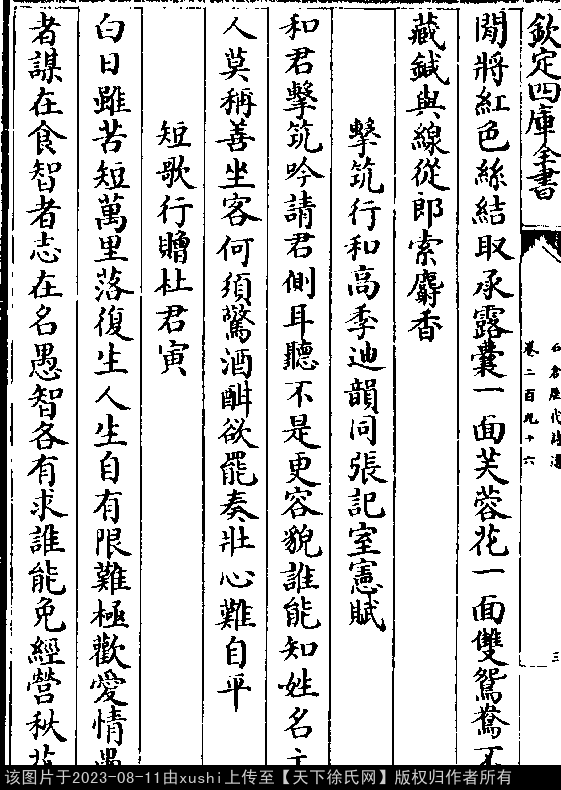 欽定四庫全書
石倉歷代詩選
卷二百九十六
三
閒將紅色絲結取承露囊一面芙蓉花一面雙鴛鴦不
藏鍼與線從郎索麝香
擊筑行和高季迪韻同張記室憲賦
和君擊筑吟請君側耳聽不是更容貌誰能知姓名主
人莫稱善坐客何須驚酒酣欲罷奏壯心難自平
短歌行贈杜君寅
白日雖苦短萬里落復生人生自有限難極歡愛情愚
者謀在食智者志在名愚智各有求誰能免經營秋
该图片于2023-08-11由xushi上传至【天下徐氏网】版权归作者所有